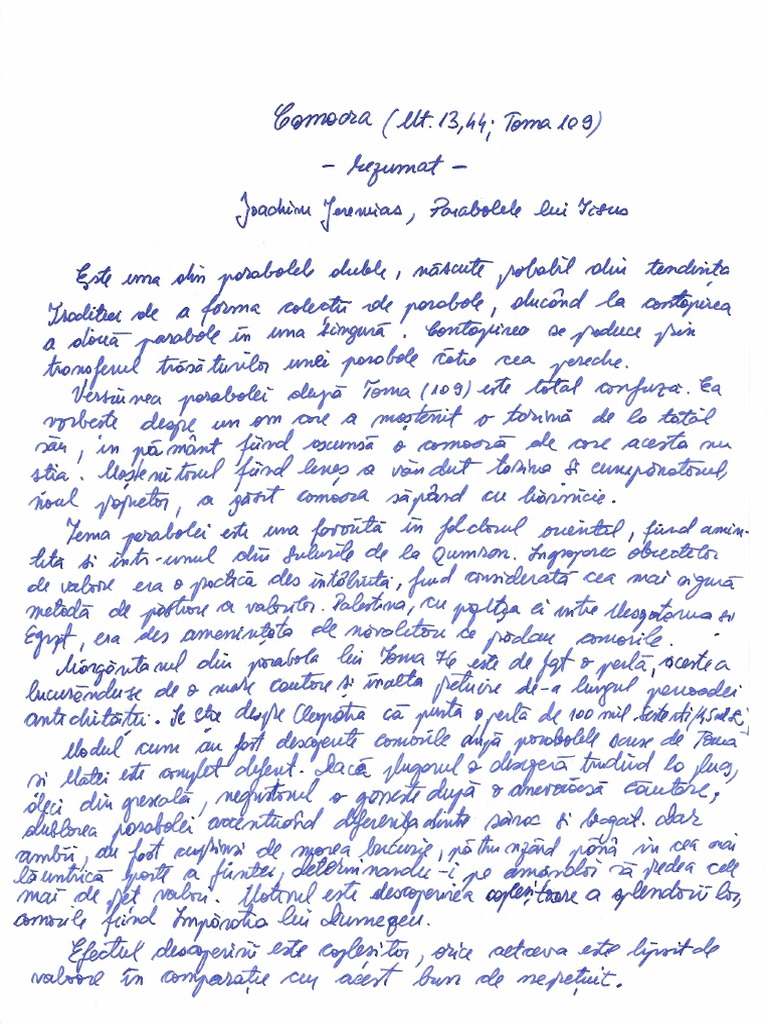 Comoara (Mt. 13,44; Toma 109)
- Rezumat -
Joachim Jeremias, Parabolele lui Iisus
Este una din parabolele duble, născute probabil din tendința
Tradiției de a forma colecții de parabole, ducând la contopirea
a două parabole în una singură. Contopirea se produce prin
transferul trăsăturilor unei parabole către cea pereche.
Versiunea parabolei după Toma (109) este total confuză. Ea
vorbește despre un om care a moștenit o țarină de la tatăl
său, în pământ fiind ascunsă o comoară de care acesta nu
știa. Moștenitorul fiind leneș a vândut țarina și cumpărătorul,
noul propietor, a găsit comoara săpând cu hărnicie.
Tema parabolei este una favorită în folclorul oriental, fiind amin-
tită și într-unul din Sulurile de la Qumran. Îngroparea obiectelor
de valoare era o practică des întâlnită, fiind considerată cea mai sigură
metodă de păstrare a valorilor. Palestina, cu poziția ei între Mesopotamia și
Egipt, era des amenințată de năvălitori ce prădau comorile.
Mărgăritarul din parabola lui Toma 76 este de fapt o perlă, aceste a
bucurându-se de o mare căutare și înaltă prețuire de-a lungul perioadei
antichității. Se știe despre Cleopatra că purta o perlă de 100 mil. Sesterți
Modul cum au fost descoperite comorile după parabolele spuse de Toma
și Matei este complet diferit. Dacă plugarul o descoperă trudind la plug,
deci din greșeală, negustorul o găsește după o anevoioasă căutare,
dublarea parabolei accentuând diferența dintre sărac și bogat. Dar
ambii, au fost cuprinși de marea bucurie, pătrunzând până în cea mai
lăuntrică parte a ființei, determinându-i pe amândoi să predea cele
mai de preț valori. Motorul este descoperirea copleșitoare a splendorii lor,
comorile fiind Împărăția lui Dumnezeu.
Efectul descoperirii este copleșitor, orice altceva este lipsit de
valoare în comparație cu acest bun de neprețuit.